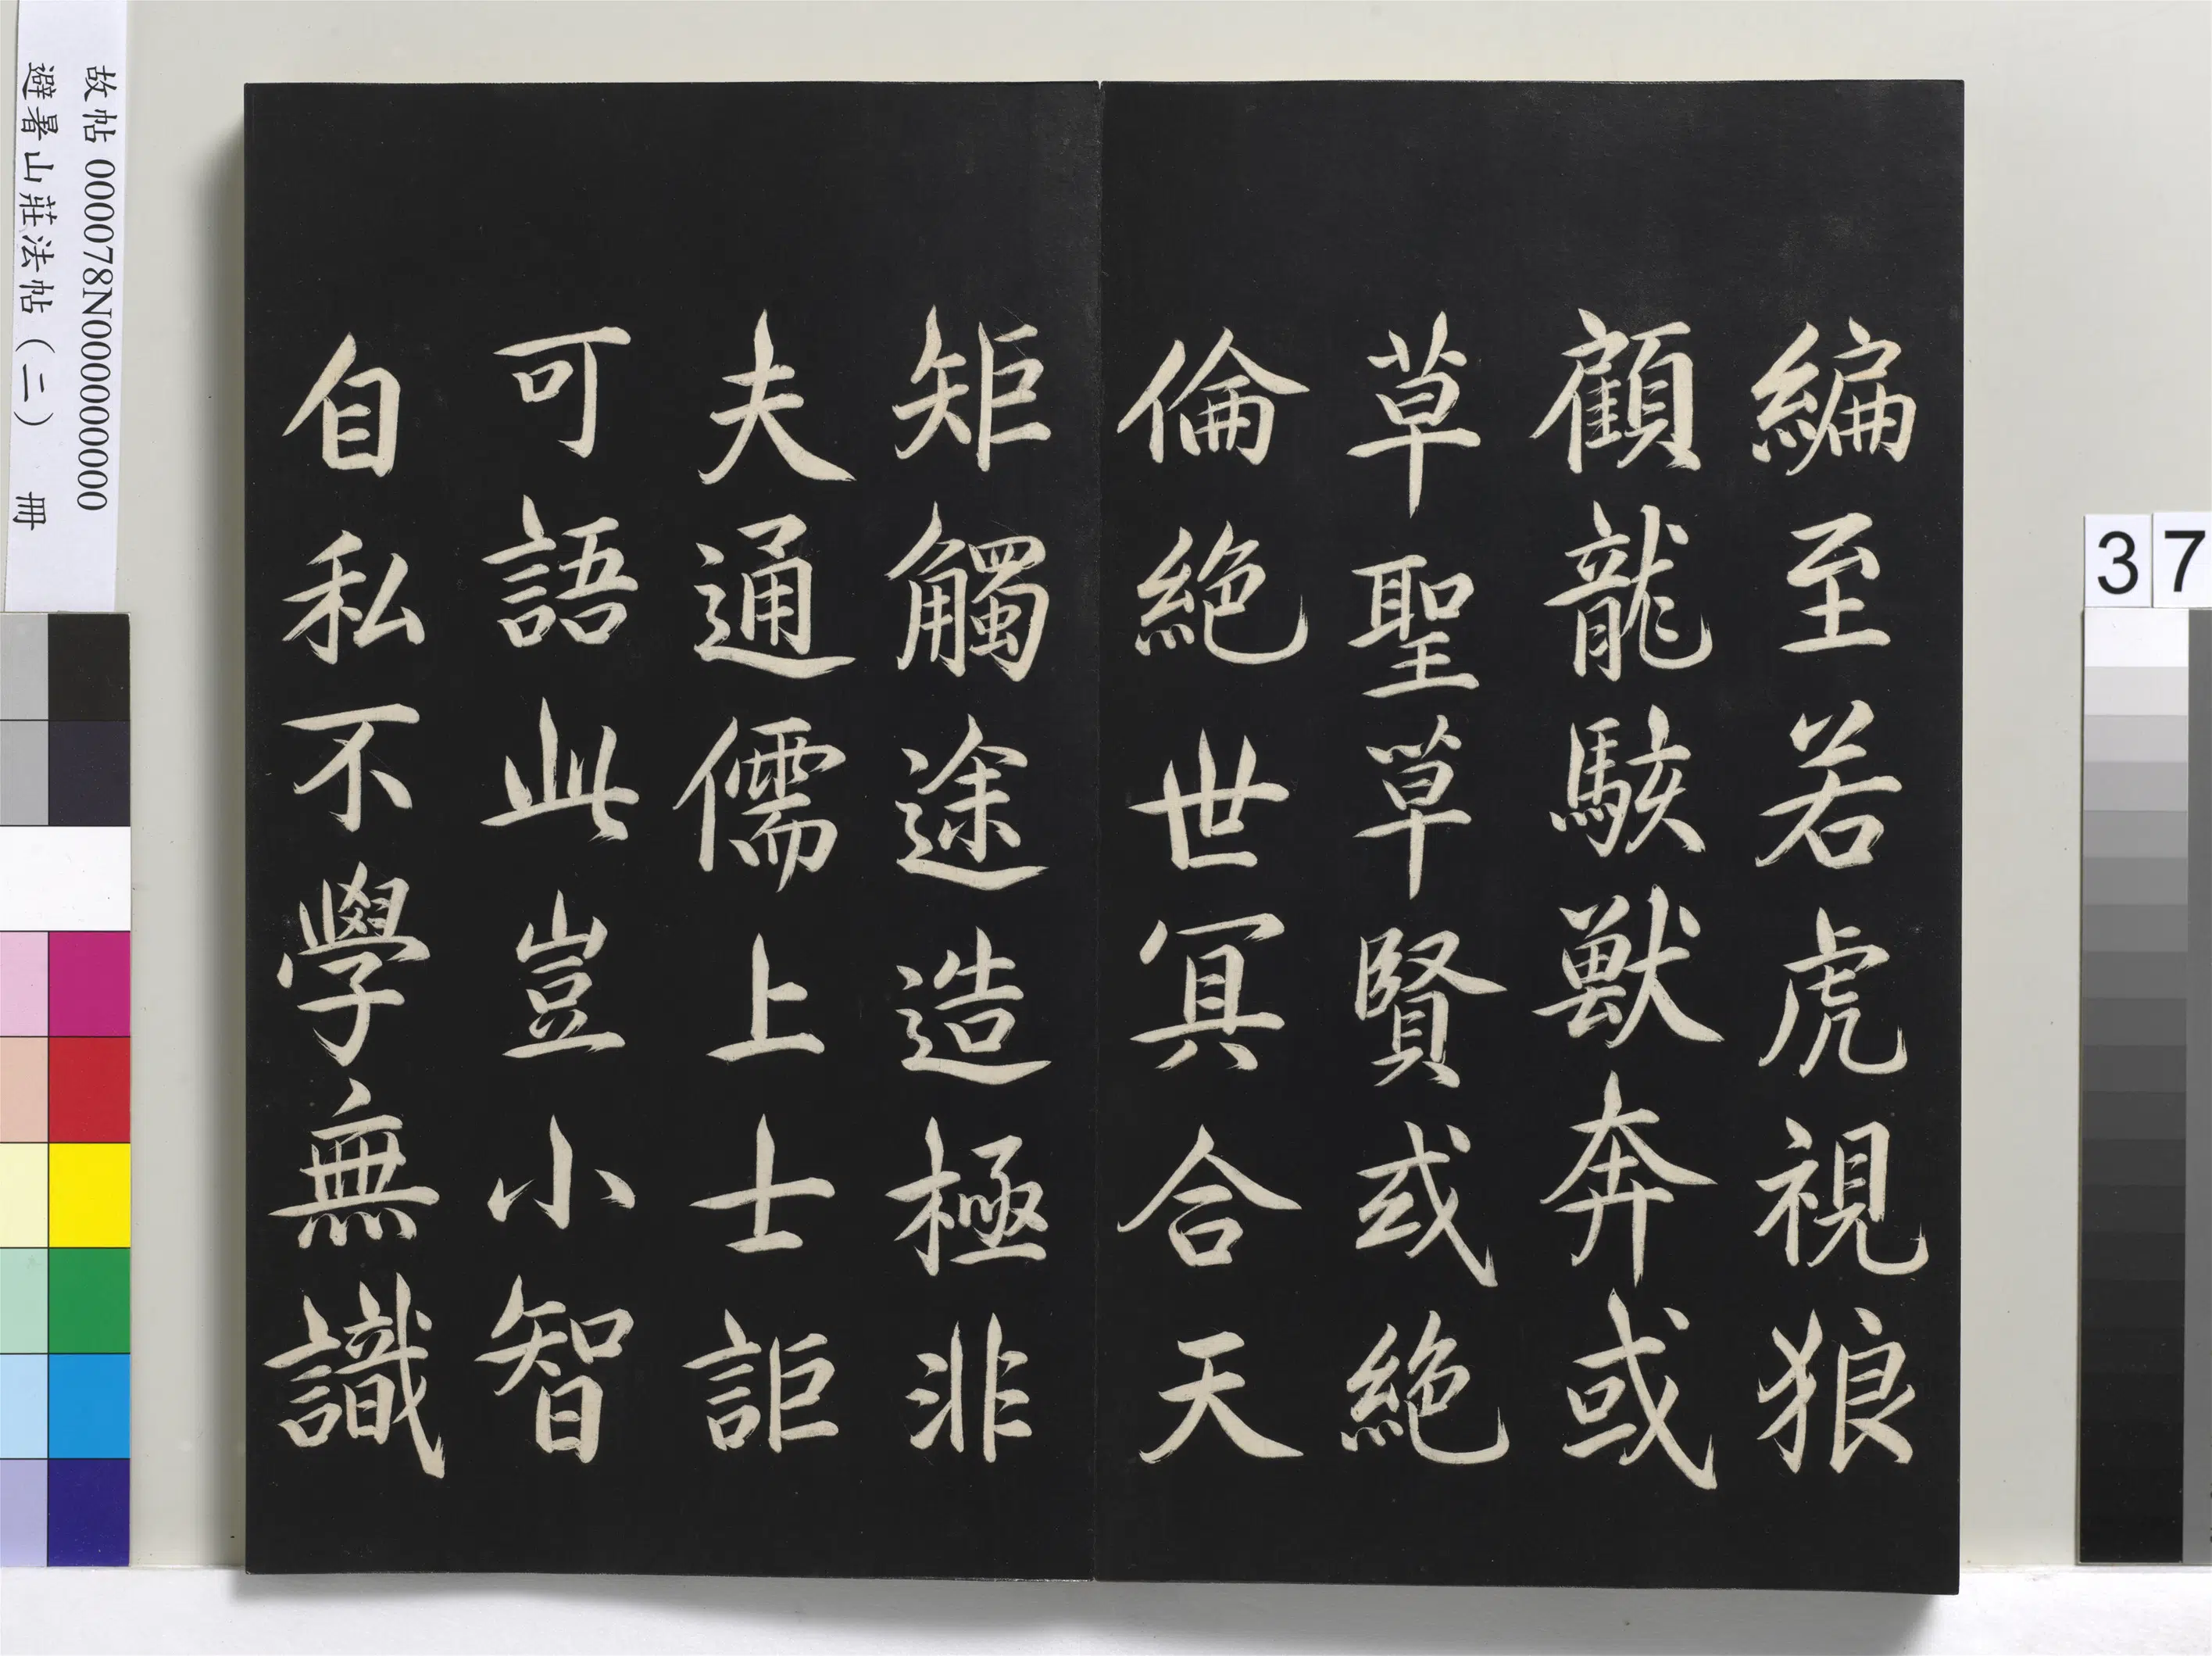 編至若虎視狼
顧龍駭獸奔或
草聖草賢或絕
倫絕世冥合天
矩觸途造極非
夫通儒上士詎
可語此豈小智
自私不學無識
故帖 000078N000000000
避暑山莊法帖（二） 冊
37